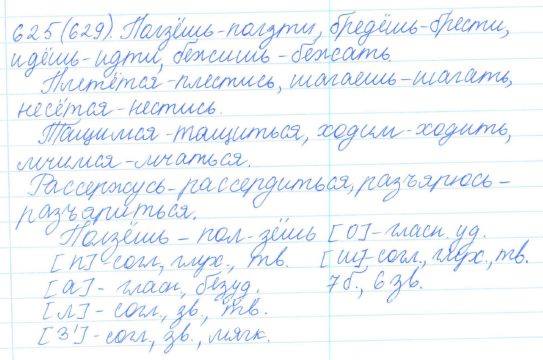 625(629). Ползёшь-ползти, бредёшь-брести,
идёшь-идти, бежишь-бежать.
Плетётся-плестись, шагаешь-шагать,
несётся-нестись.
Тащимся-тащиться, ходим-ходить,
мчимся-мчаться.
Рассержусь-рассердиться, разъярюсь-
разъяриться.
Ползёшь - пол-зёшь [О]-гласн. уд.
[п]-согл., глух., тв. [ш]-согл., глух., тв.
[а]- гласн., безуд. 7б., 6 зв.
[л]- согл., зв., тв.
[З']-согл., зв., мягк.